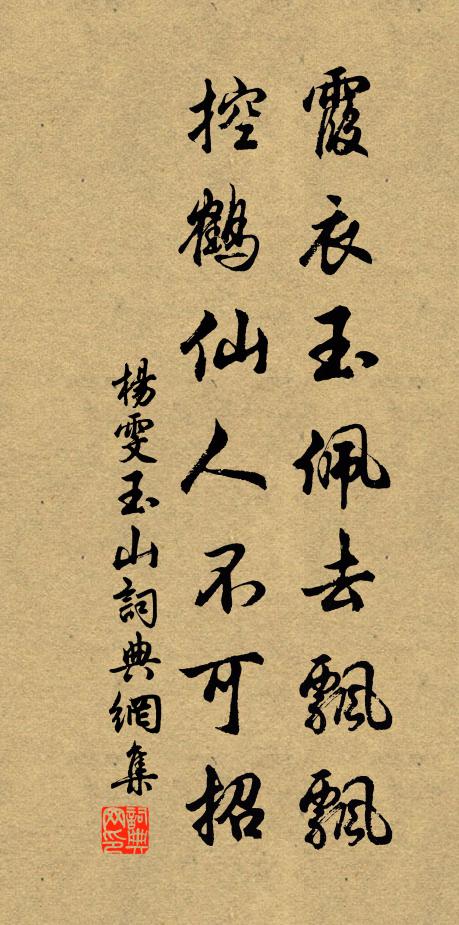 霞衣玉佩去飄飄
控鶴仙人不可招
楊雯玉山詞典網集
詞典網印